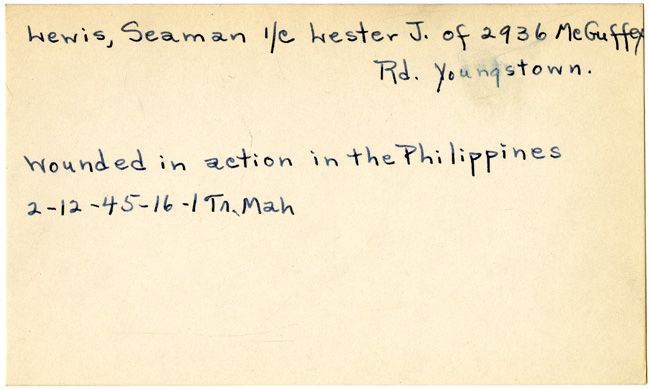 Lewis, Seaman 1/c Lester J. of 2936 McGuffey
Rd. Youngstown.
Wounded in action in the Philippines
2-12-45-16-1 Tr. Mah